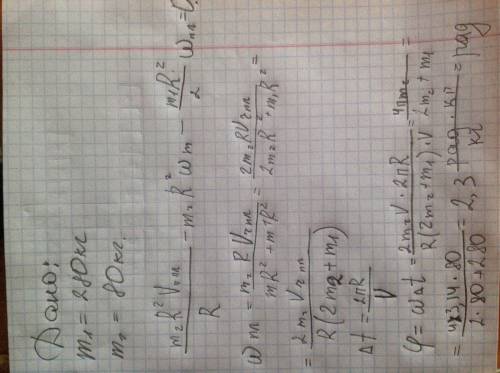 Дано:
m₁ = 280 кг
m₂ = 80 кг.
m₂R²V₂пл / R − m₂R²ωm − m₁R² / 2 ωпл = 0
ωпл = m₂RV₂пл / mR² + m1R² = 2m₂RV₂пл / 2m₂R² + m₁R² =
= 2m₂V₂пл / R(2m2 + m₁)
Δt = 2πR / V
φ = ωΔt = 2m₂V · 2πR / R(2m₂ + m₁) · V = 4πm₂ / 2m₂ + m₁ =
= 4 * 3,14 · 80 / 2 · 80 + 280 = 2,3 рад · кг / кг = рад